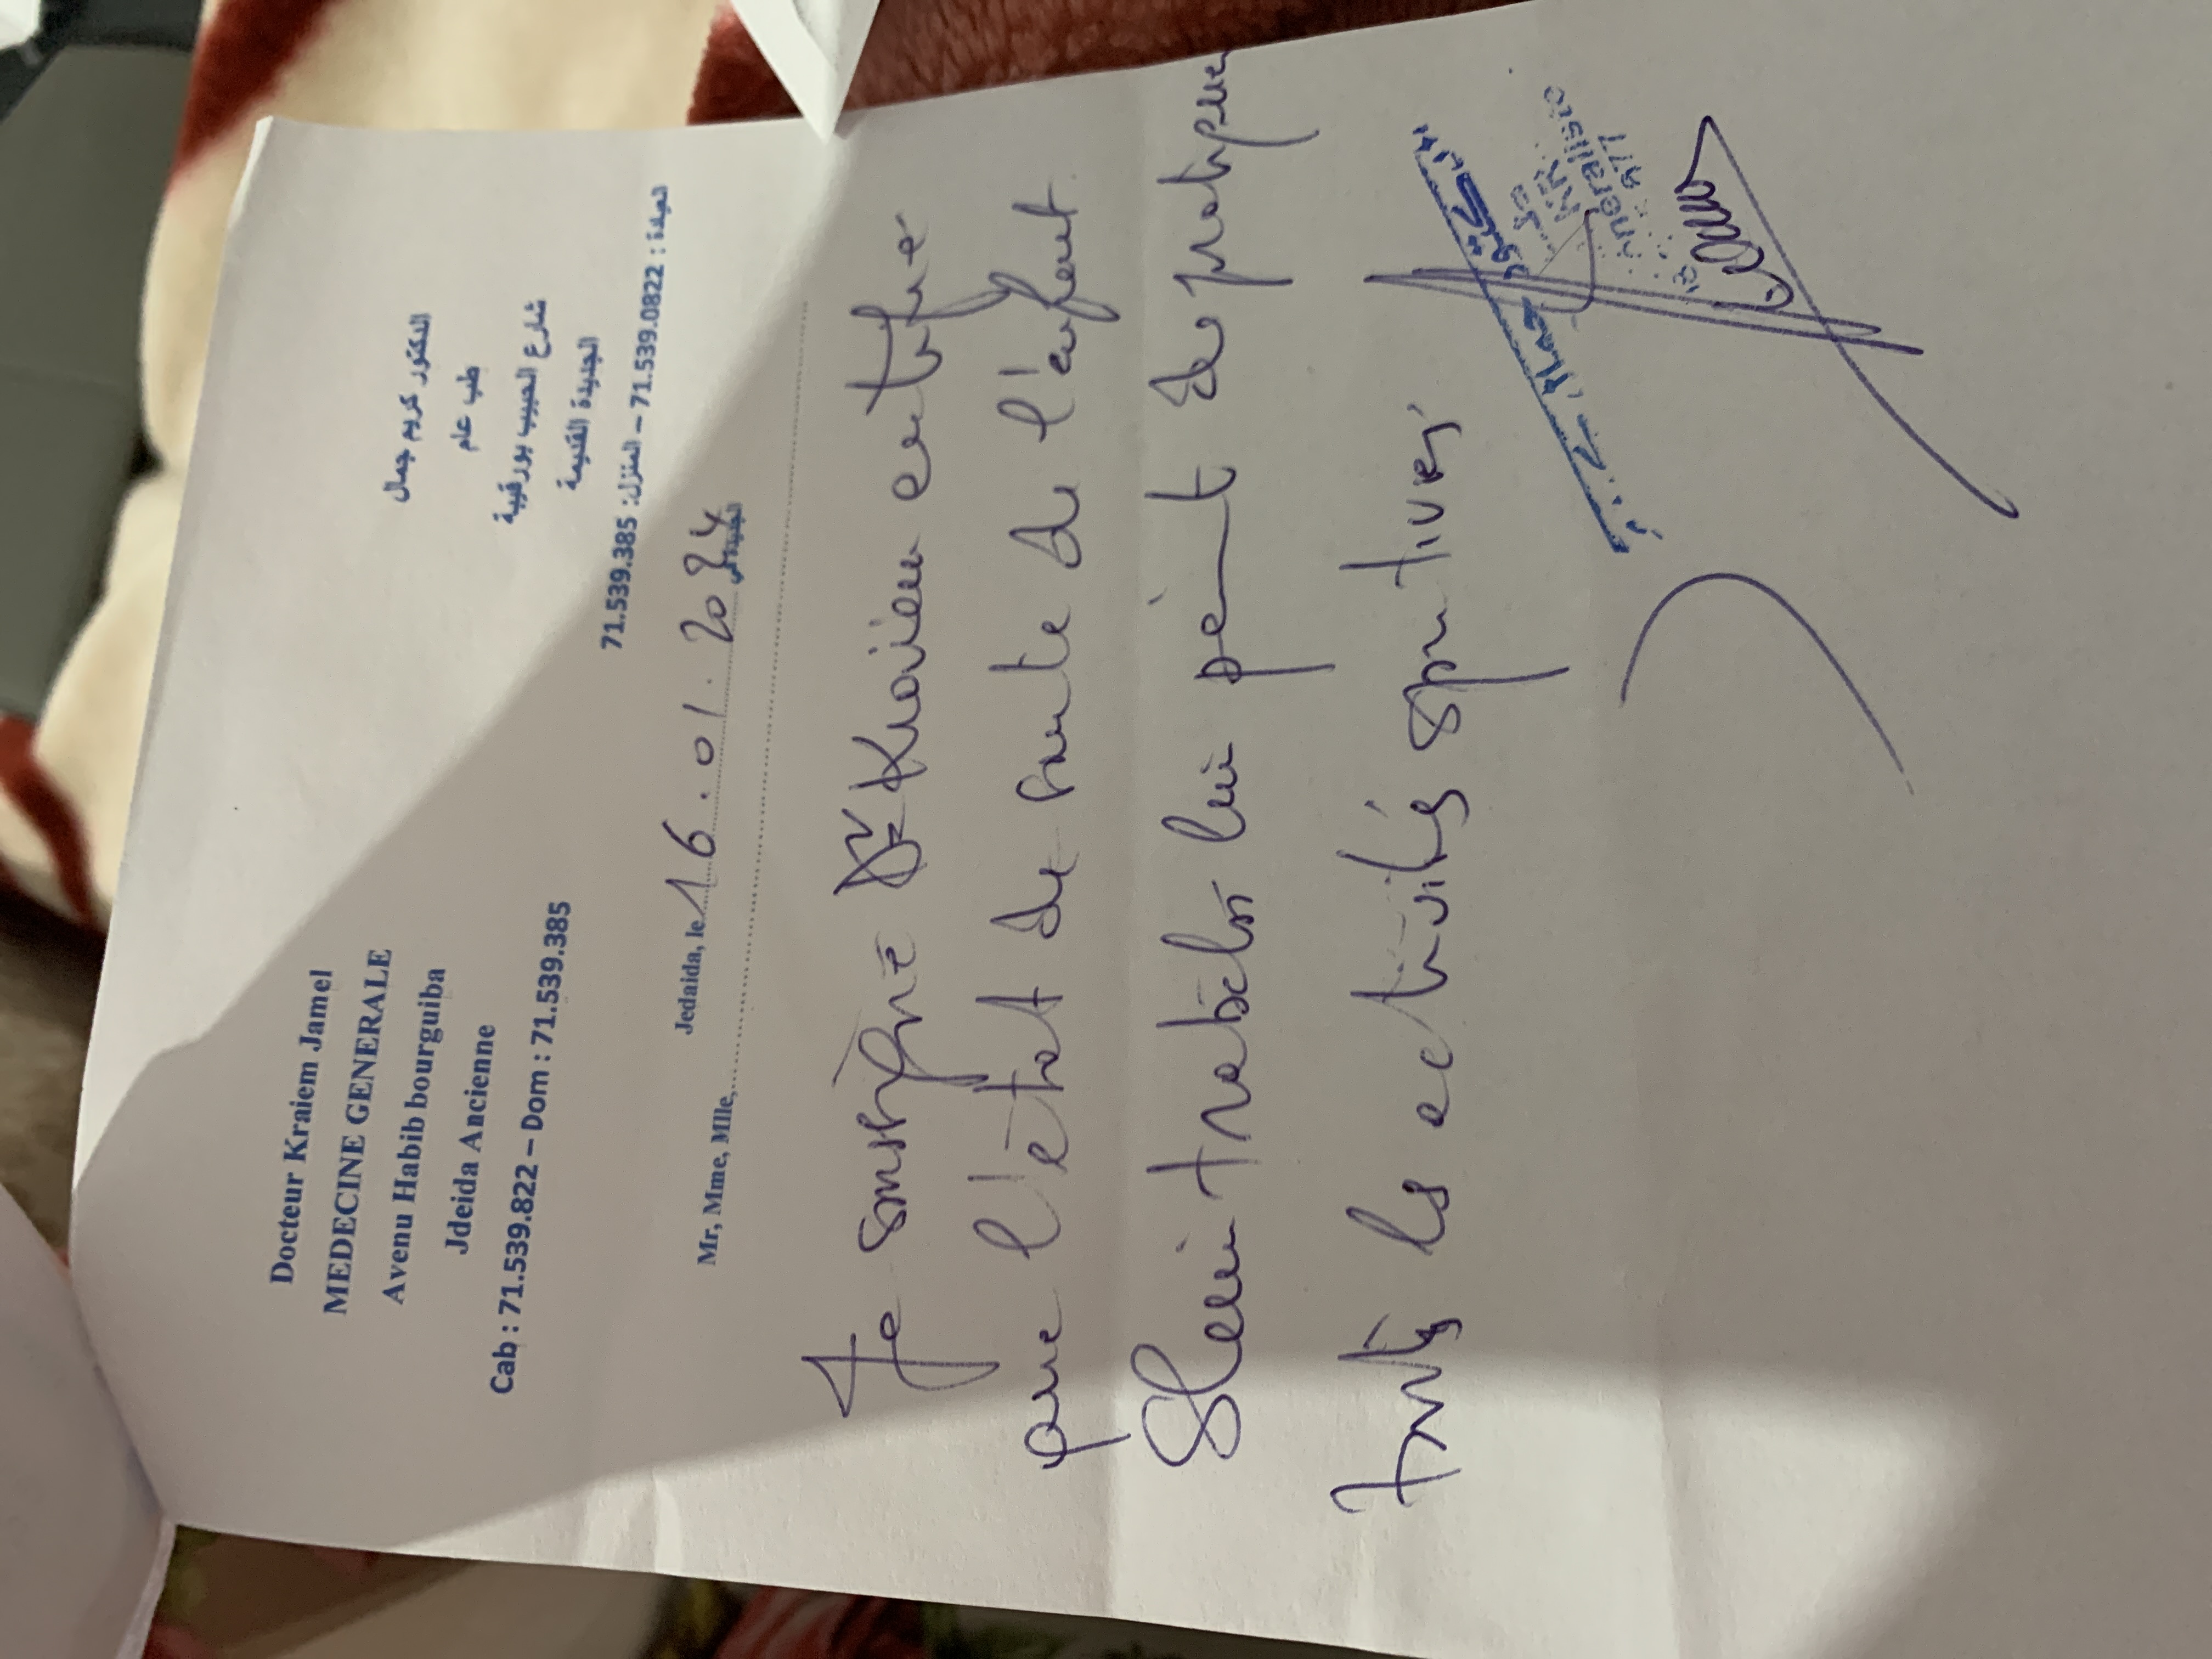 Docteur Kraiem Jamel
MEDECINE GENERALE
Avenu Habib bourguiba
Jdeida Ancienne
Cab : 71.539.822 – Dom : 71.539.385
الدكتور كريم جمال
طب عام
شارع الحبيب بورقيبة
الجديدة القديمة
العيادة : 71.539.0822 – المنزل: 71.539.385
Jedaida, le 16.01.2024 الجديدة في
Mr, Mme, Mlle,
Je soussigné Dr Kraiem certifie
que l'état de santé de l'enfant
Slim Trabelsi lui permet de pratiquer
toutes les activités sportives